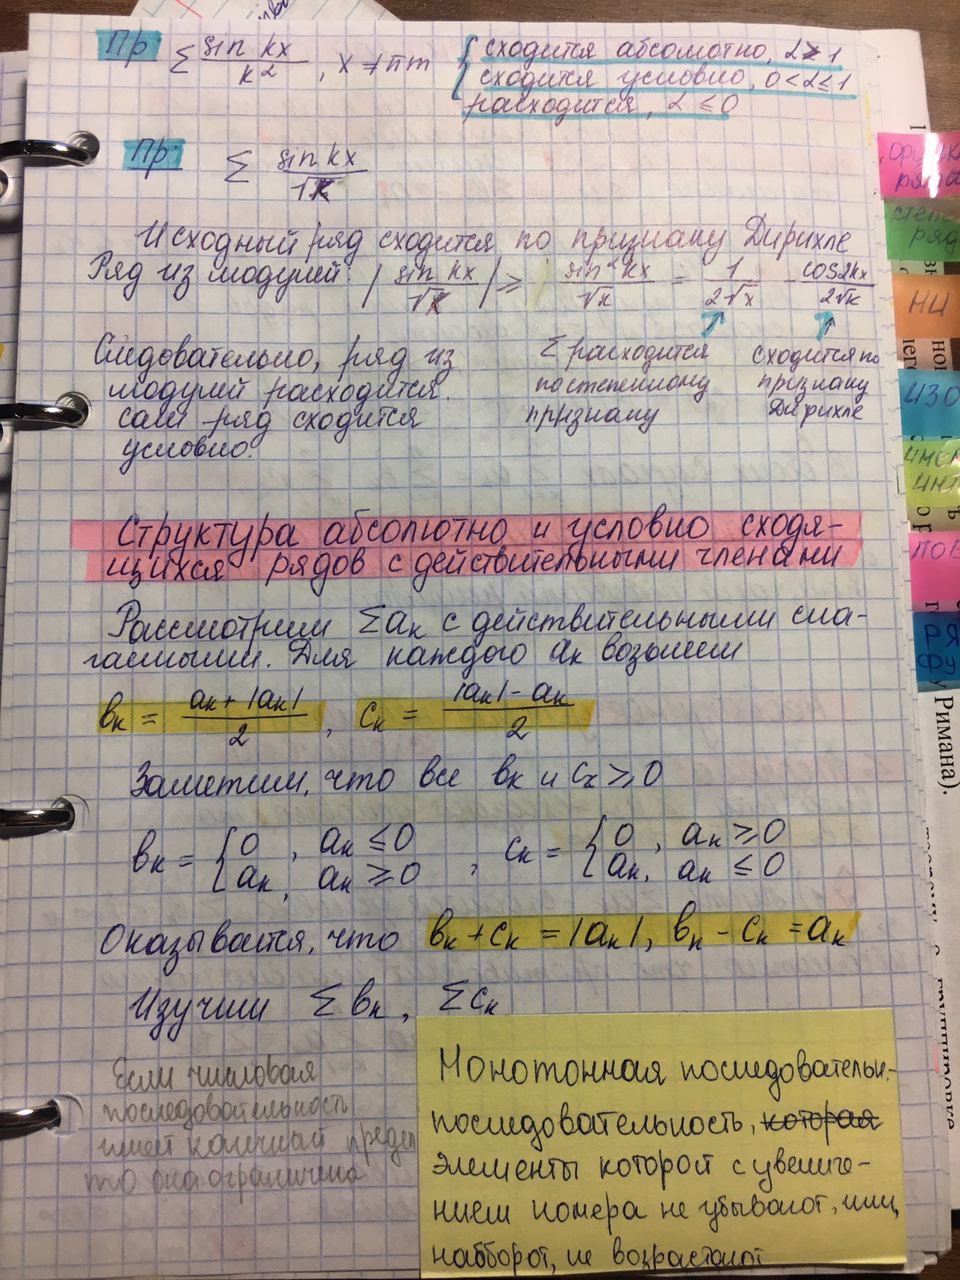 Пр ∑ sin kx / k^α , x ≠ πm { сходится абсолютно, α > 1
сходится условно, 0 < α ≤ 1
расходится, α ≤ 0
Пр. ∑ sin kx / √k
Исходный ряд сходится по признаку Дирихле
Ряд из модулей: | sin kx / √k | ≥ sin² kx / √k = 1 / 2√k - cos2kx / 2√k
Следовательно, ряд из
модулей расходится.
сам ряд сходится
условно.
∑ расходится
по степенному
признаку
сходится по
признаку
Дирихле
Структура абсолютно и условно сходя-
щихся рядов с действительными членами
Рассмотрим ∑ aк с действительными сла-
гаемыми. Для каждого aк возьмем
вк = aк + |aк| / 2 , cк = |aк| - aк / 2
Заметим, что все вк и cк ≥ 0
вк = { 0 , aк ≤ 0 ; cк = { 0 , aк ≥ 0
aк, aк ≥ 0 aк, aк ≤ 0
Оказывается, что вк + cк = |aк|, вк - cк = aк
Изучим ∑ вк , ∑ cк
Если числовая
последовательность
имеет конечный предел
то она ограничена
Монотонная последовательн.-
последовательность, которая
элементы которой с увеличе-
нием номера не убывают, или,
наоборот, не возрастают
ряда
степ
ряд
НИ
ИЗО
ИНТ
ПОВ
РЯ
ФУ
у Римана).